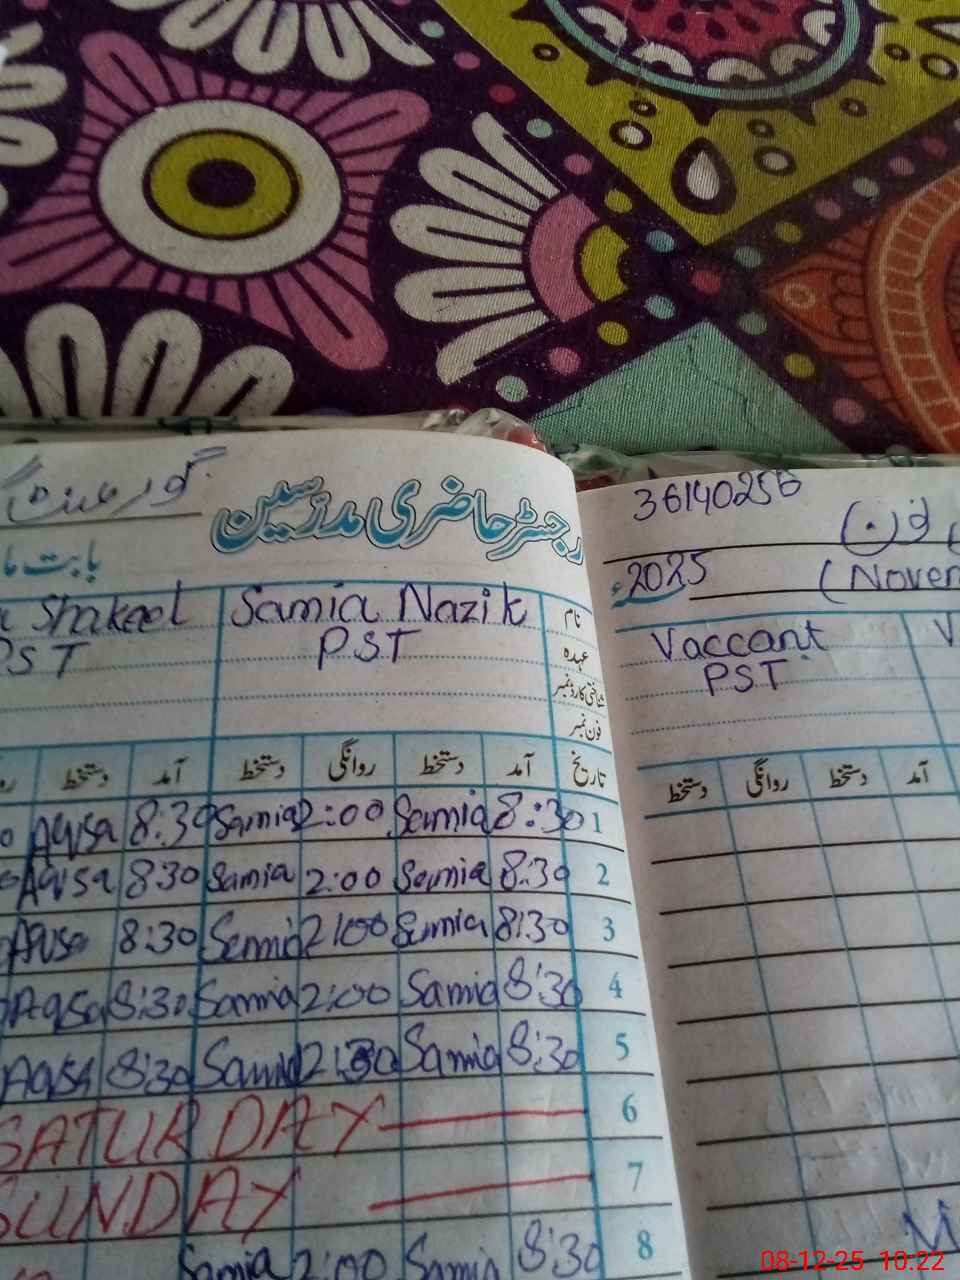 رجسٹر حاضری مدرسین
بابت ما
36140256
2025ء (Novem
Shakeel Samia Nazik نام
PST PST عہدہ
شناختی کارڈ نمبر
فون نمبر
Vaccant
PST
دستخط آمد دستخط روانگی دستخط آمد تاریخ
دستخط روانگی دستخط آمد
Aqsa 8:30 Samia 2:00 Samia 8:30 1
Aqsa 830 Samia 2:00 Samia 8:30 2
Aqsa 8:30 Samia 2:00 Samia 8:30 3
Aqsa 8:30 Samia 2:00 Samia 8:30 4
Aqsa 8:30 Samia 2:30 Samia 8:30 5
SATURDAY 6
SUNDAY 7
Samia 2:00 Samia 8:30 8
08-12-25 10:22